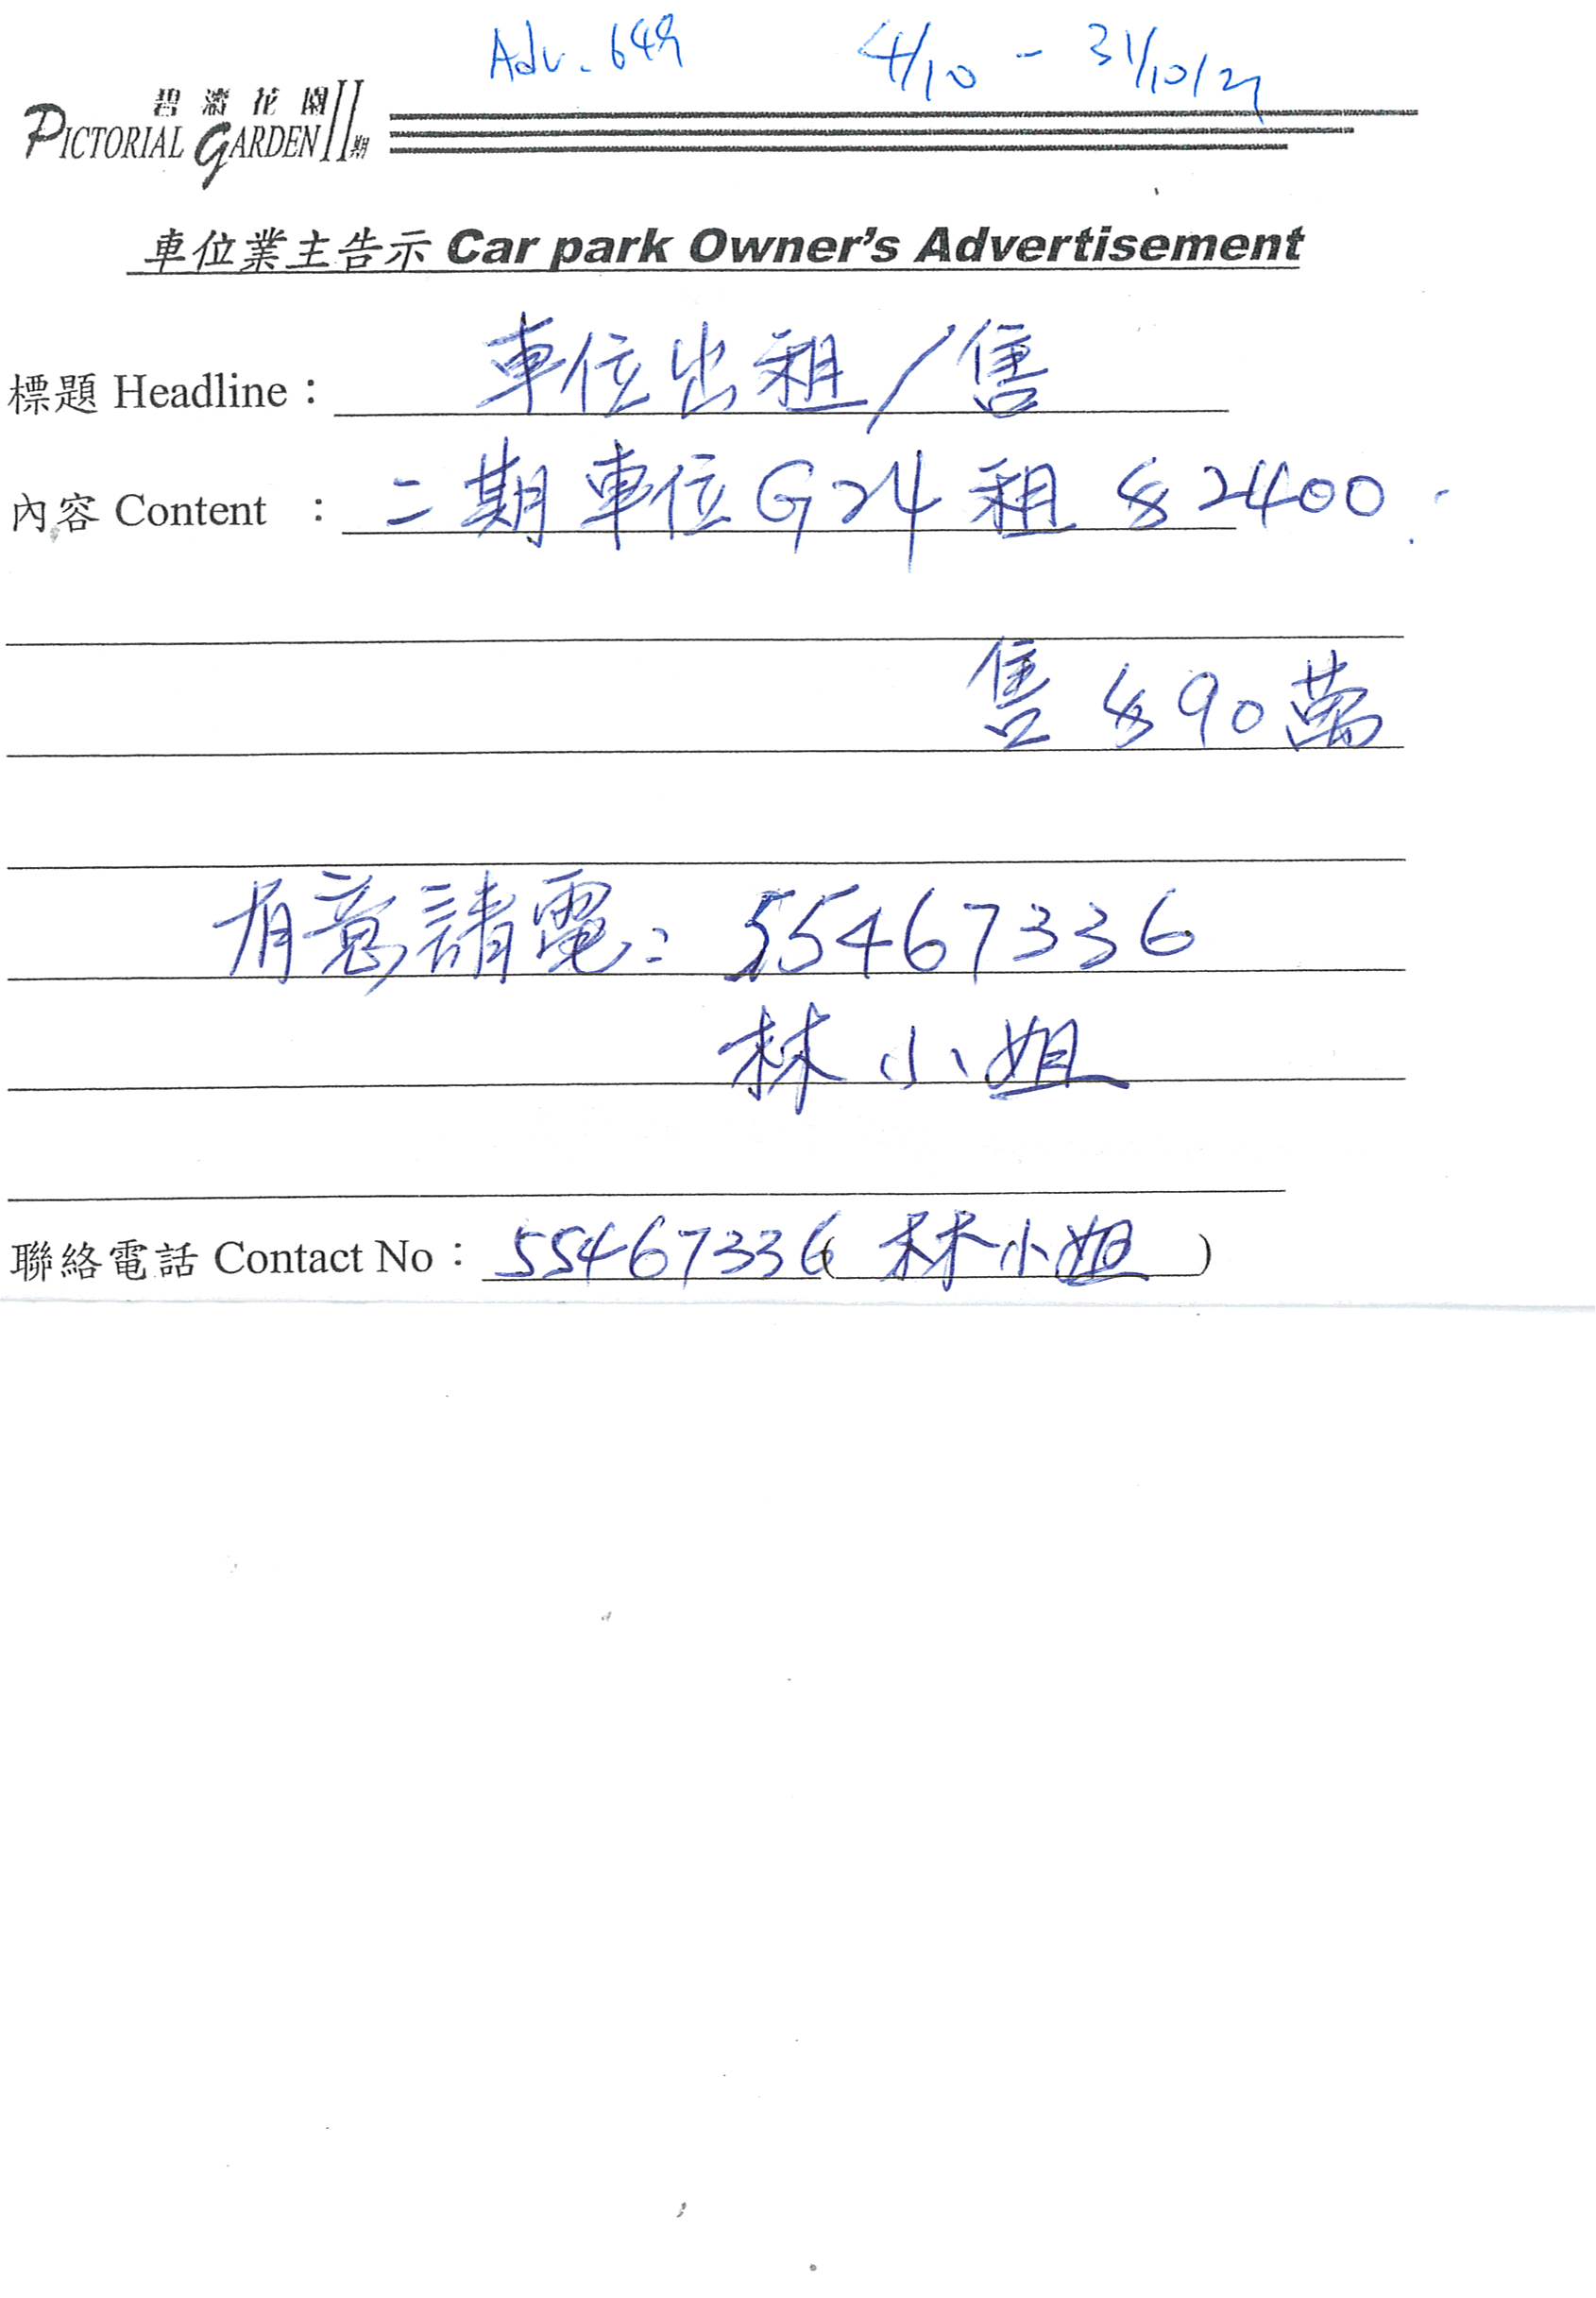 Adv. 649 4/10 - 31/10/21
碧濤花園II期
PICTORIAL GARDEN
車位業主告示 Car park Owner's Advertisement
標題 Headline : 車位出租/售
內容 Content : 二期車位G24租 $2400.
售 $90萬
有意請電: 55467336
林小姐
聯絡電話 Contact No : 55467336 ( 林小姐 )